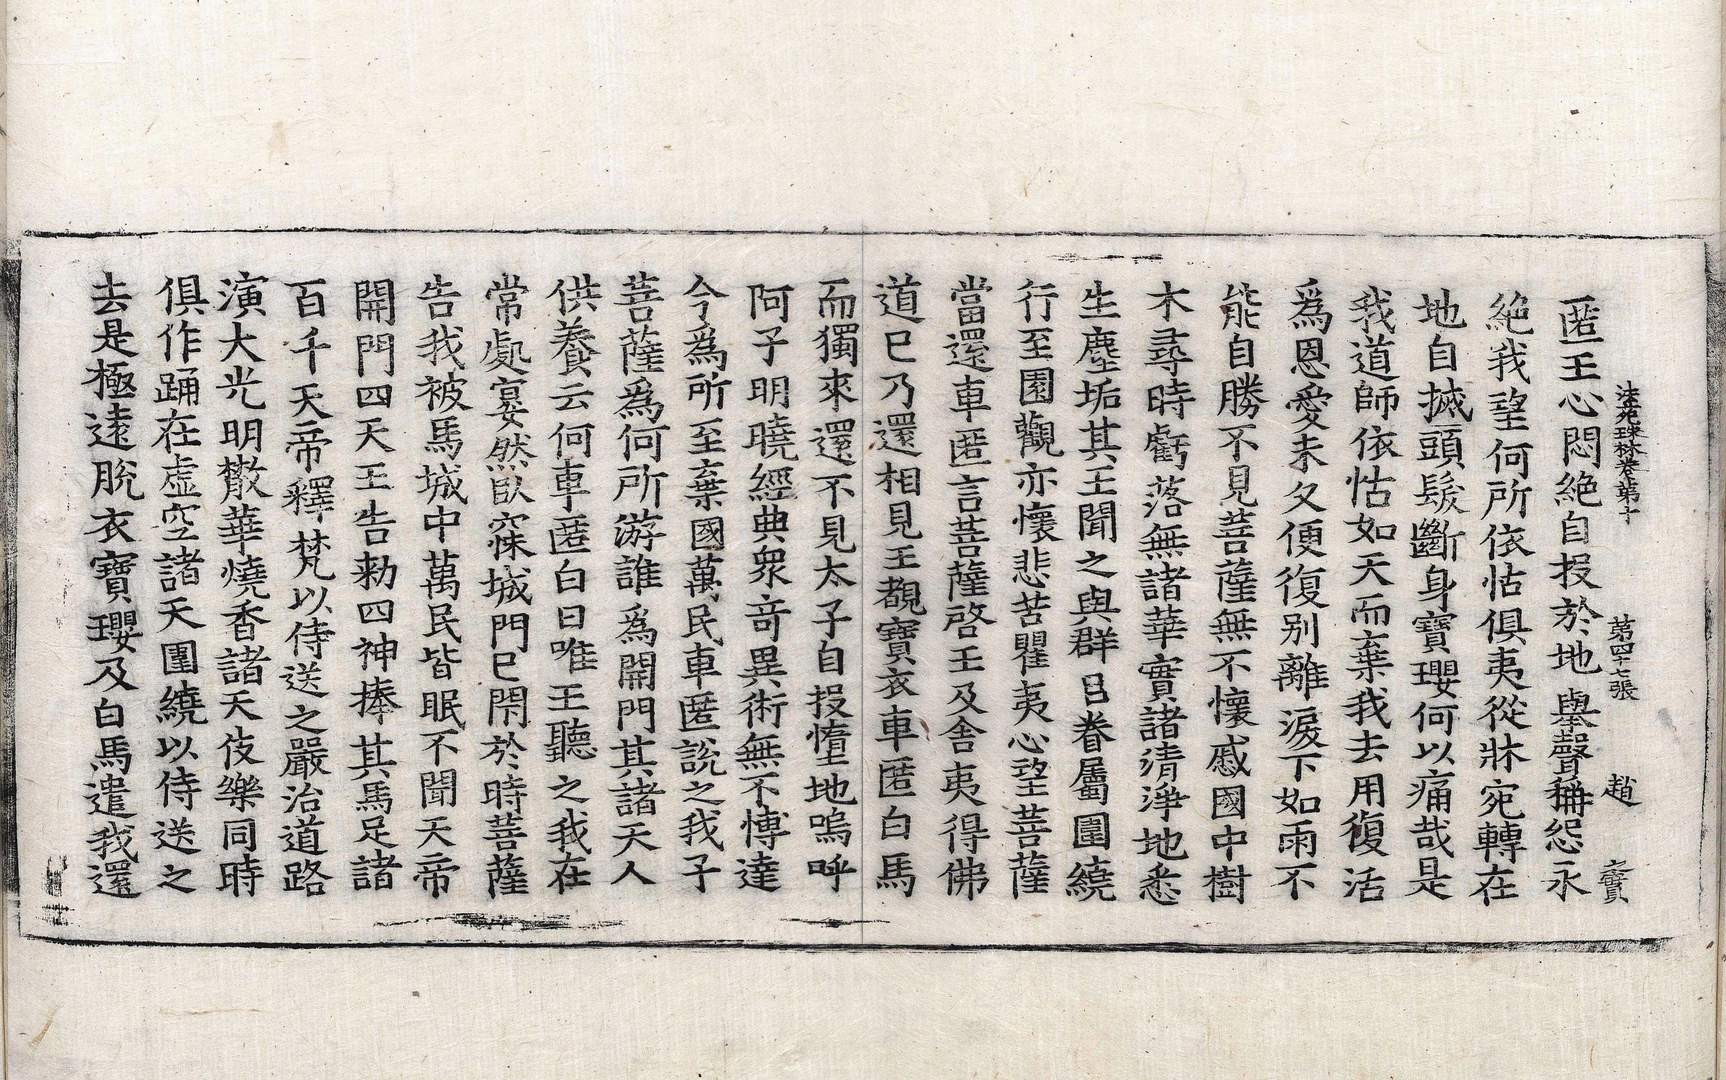 法苑珠林卷第十 第四十七張 趙 寶
匿王心悶絶自投於地舉聲稱怨永
絶我望何所依怙俱夷從牀宛轉在
地自摵頭髮斷身寶瓔何以痛哉是
我道師依怙如天而棄我去用復活
爲恩愛未久便復别離淚下如雨不
能自勝不見菩薩無不懷慼國中樹
木尋時虧落無諸華實諸清淨地悉
生塵垢其王聞之與群臣眷屬圍繞
行至園觀亦懷悲苦瞿夷心望菩薩
當還車匿言菩薩啓王及舍夷得佛
道已乃還相見王覩寶衣車匿白馬
而獨來還不見太子自投墮地嗚呼
阿子明曉經典衆竒異術無不愽達
今爲所至棄國萬民車匿說之我子
菩薩爲何所游誰爲開門其諸天人
供養云何車匿白曰唯王聽之我在
常處宴然臥寐城門已閇於時菩薩
告我被馬城中萬民皆眠不聞天帝
開門四天王告勑四神捧其馬足諸
百千天帝釋梵以侍送之嚴治道路
演大光明散華燒香諸天伎樂同時
俱作踊在虚空諸天圍繞以侍送之
去是極遠脫衣寶瓔及白馬遣我還